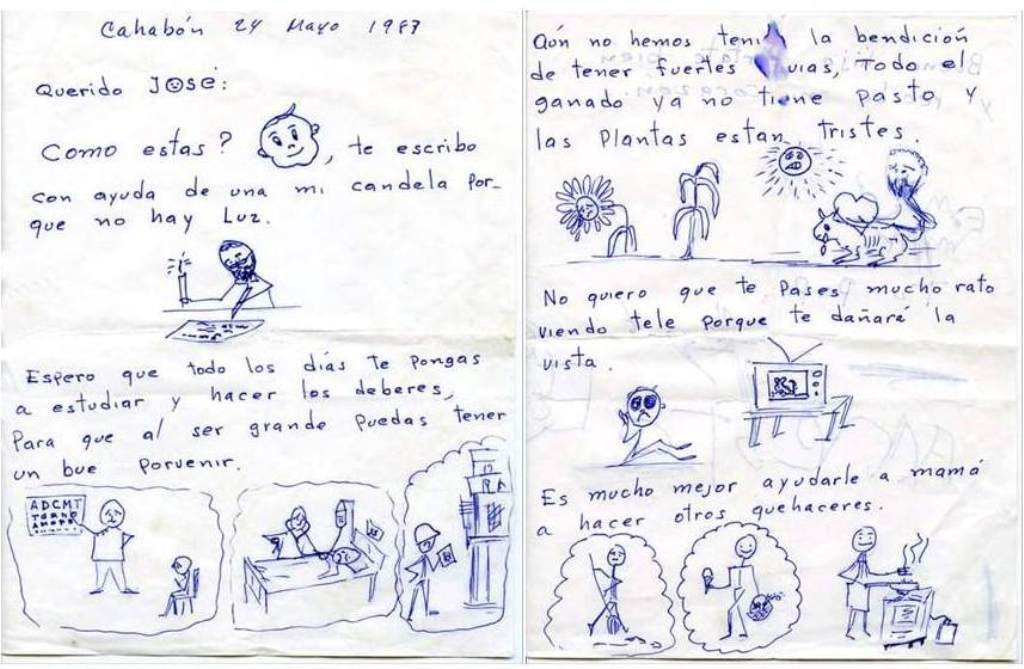 Cahabón 24 Mayo 1987
Querido José:
Como estas? , te escribo
con ayuda de una mi candela Por-
que no hay Luz.
Espero que todo los días te pongas
a estudiar y hacer los deberes,
Para que al ser grande Puedas tener
un bue Porvenir.
ADCMT
Aún no hemos la bendición
de tener fuertes Todo el
ganado ya no tiene pasto y
las Plantas estan tristes.
No quiero que te Pases mucho rato
viendo tele porque te dañará la
vista.
Es mucho mejor ayudarle a mamá
a hacer otros quehaceres.